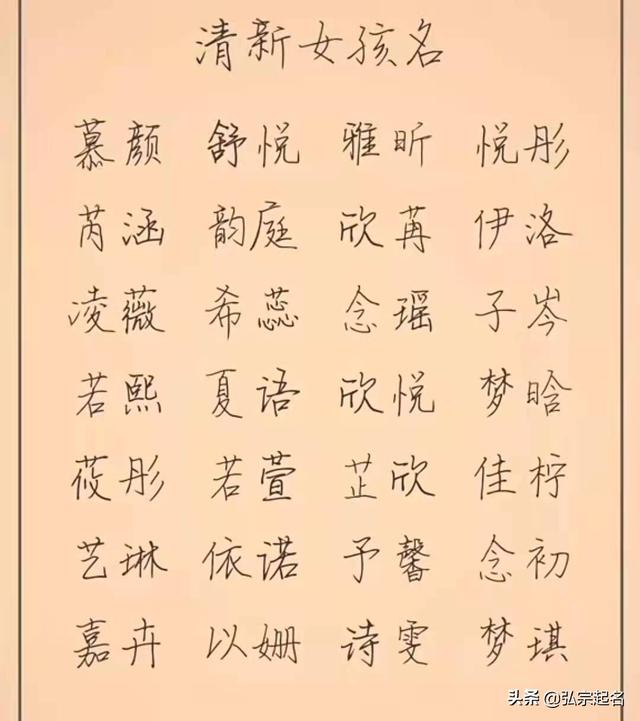 清新女孩名
慕颜 舒悦 雅昕 悦彤
芮涵 韵庭 欣苒 伊洛
凌薇 希蕊 念瑶 子岑
若熙 夏语 欣悦 梦晗
莜彤 若萱 芷欣 佳柠
艺琳 依诺 予馨 念初
嘉卉 以姗 诗雯 梦琪
头条 @弘宗起名